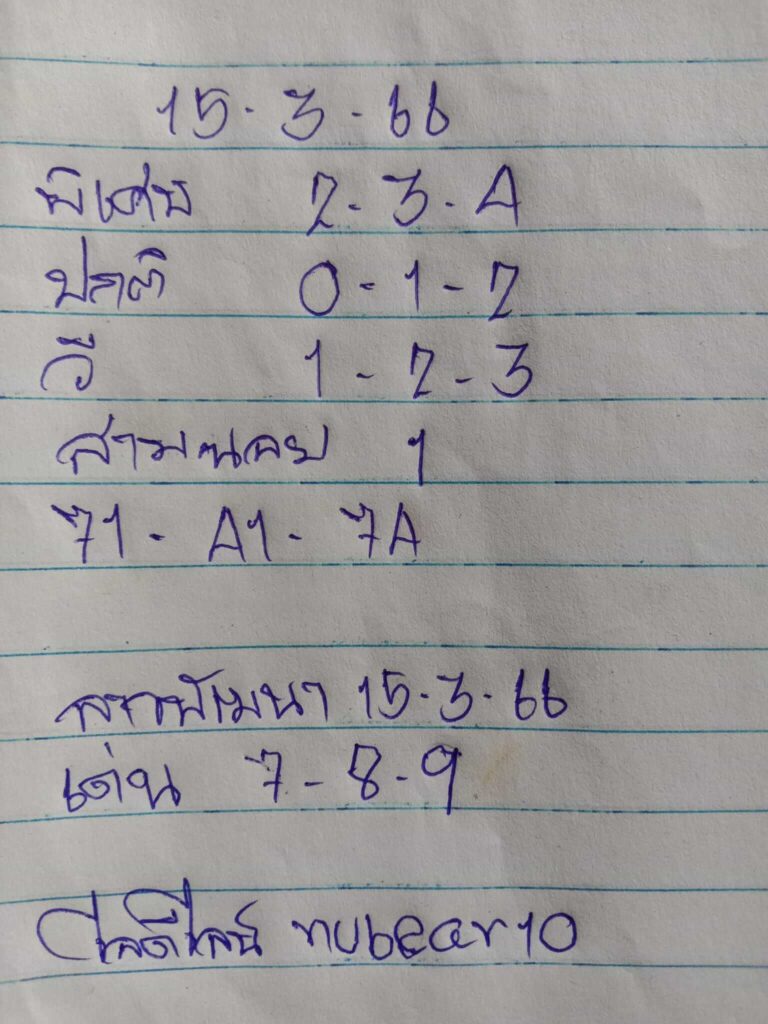 15-3-66
พิเศษ 2-3-A
ปกติ 0-1-2
วี 1-2-3
สามตลอย 1
71- A1- 7A
ลาวพัฒนา 15-3-66
เด่น 7-8-9
ไอดีไลน์ nubear10